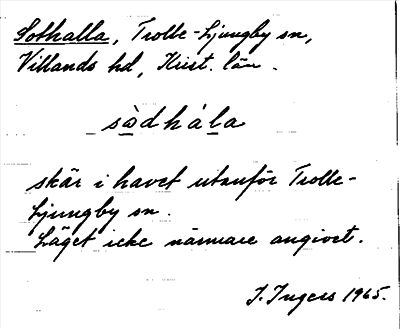 Sothalla, Trolle-Ljungby sn,
Villands hd, Krist. län.
sòdhála
skär i havet utanför Trolle-
Ljungby sn.
Läget icke närmare angivet.
I. Ingers 1965.